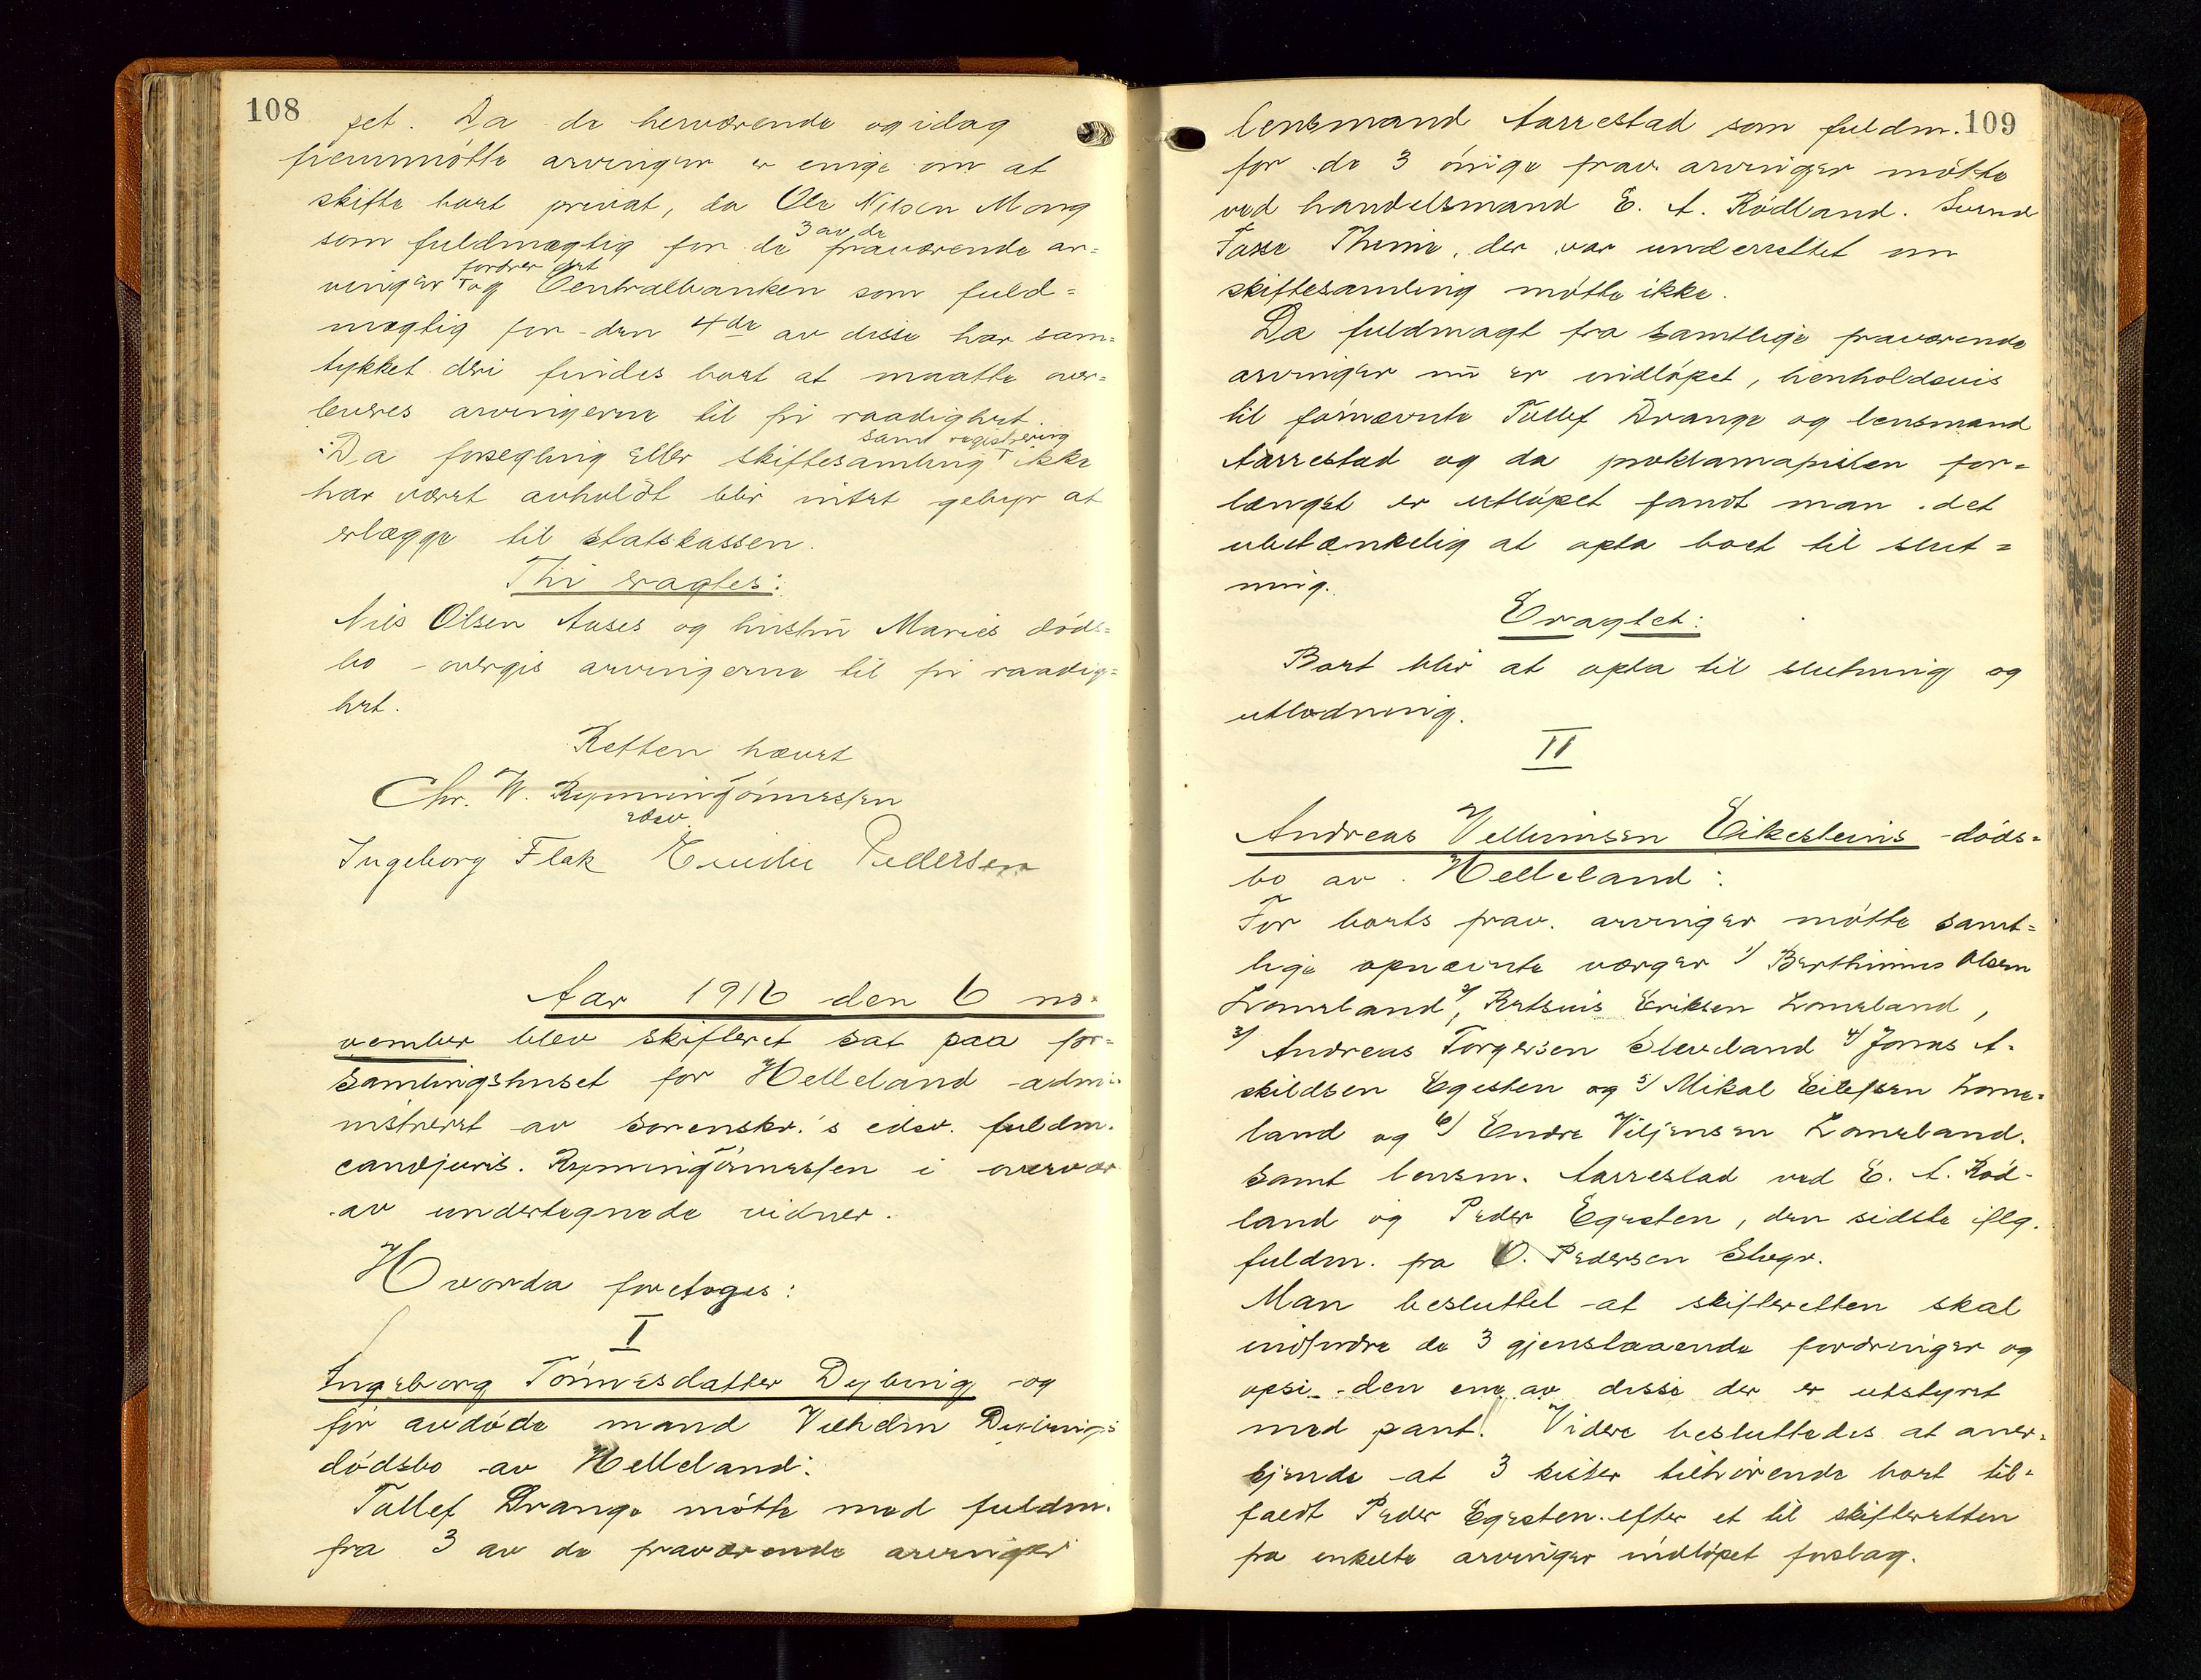 108
set. Da de herværende og idag
fremmøtte arvinger er enige om at
skifte boet privat, da Ole Nilsen Mong
som fuldmægtig for de 3 av de fraværende ar=
vinger fordrer det og Centralbanken som fuld=
mægtig for den 4de av disse har sam=
tykket deri findes boet at maatte over=
leveres arvingerne til fri raadighet.
Da forsegling eller skiftesamling samt registrering ikke
har været avholdt blir intet gebyr at
erlægge til statskassen.
Thi eragtes:
Nils Olsen Aases og hustru Maries døds=
bo overgis arvingerne til fri raadig=
het.
Retten hævet
Chr. W. Rynning Tønnessen
edsv.
Ingeborg Flak Emilie Pedersen
Aar 1916 den 6 no=
vember blev skifteret sat paa for=
samlingshuset for Helleland admi=
nistreret av sorenskr.'s edsv. fuldm.
cand juris. Rynning Tønnessen i overvær
av undertegnede vidner.
Hvorda foretoges:
I
Ingeborg Tønnesdatter Dybing og
før avdøde mand Vilhelm Dybings
dødsbo av Helleland:
Tollef Drange møtte med fuldm.
fra 3 av de fraværende arvinger
109
lensmand Aarrestad som fuldm.
for de 3 øvrige frav. arvinger møtte
ved handelsmand E. A. Rødland. Svend
Tasse Theme, der var underrettet om
skiftesamling møtte ikke.
Da fuldmagt fra samtlige fraværende
arvinger nu er indløpet, henholdsvis
til førnævnte Tollef Drange og lensmand
Aarrestad og da proklamafristen for=
længst er utløpet fandt man det
ubetænkelig at opta boet til slut=
ning.
Eragtet:
Boet blir at opta til slutning og
utlodning.
II
Andreas Vellumsen Eikesteins døds=
bo av Helleland:
For boets frav. arvinger møtte samt=
lige opnævnte værger 1/ Berthinius Olsen
Lomeland, 2/ Retsius Eriksen Lomeland,
3/ Andreas Torgersen Sleveland 4/ Jonas A=
skildsen Egesten og 5/ Mikal Eilefsen Lome=
land og 6/ Endre Viljensen Lomeland.
samt lensm. Aarrestad ved E. A. Rød=
land og Peder Egesten, den sidste iflg.
fuldm. fra O. Pedersen
Man besluttet at skifteretten skal
indfordre de 3 gjenstaaende fordringer og
opsi den ene av disse der er utstyret
med pant. Videre besluttedes at aner=
kjende at 3 kister tilhørende boet til=
faldt Peder Egesten efter et til skifteretten
fra enkelte arvinger indløpet forslag.